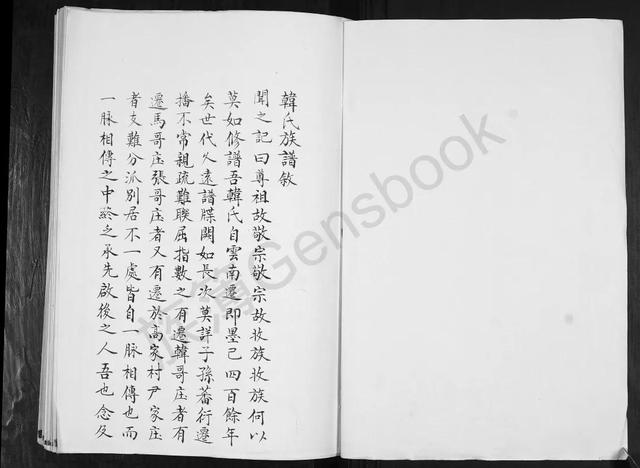 韓氏族譜敘
聞之記曰尊祖故敬宗敬宗故收族收族何以
莫如修譜吾韓氏自雲南遷即墨已四百餘年
矣世代久遠譜牒闕如長次莫詳子孫蕃衍遷
播不常親疏難聯屈指數之有遷韓哥庄者有
遷馬哥庄張哥庄者又有遷於高家村尹家庄
者支難分派別居不一處皆自一脉相傳也而
一脉相傳之中繇之承先啟後之人吾也念及
族簿Gensbook